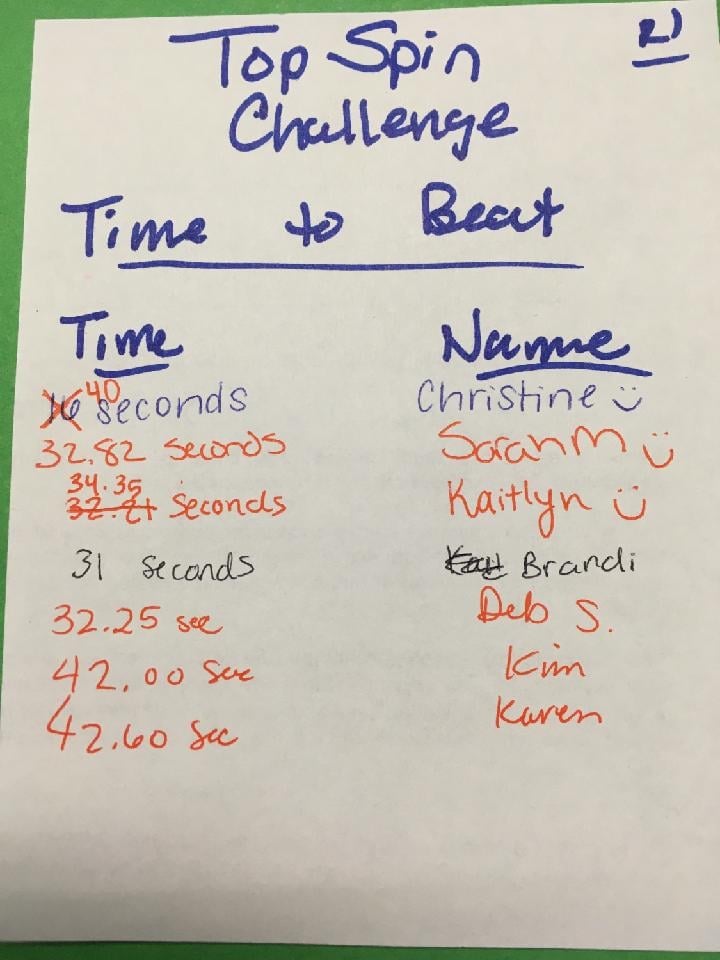 2)
Top Spin
Challenge
Time to Beat
Time Name
16 40 seconds Christine
32.82 seconds Sarah M
34.35
32.21 seconds Kaitlyn
31 seconds Brandi
32.25 sec Deb S.
42.00 Sec Kim
42.60 Sec Karen